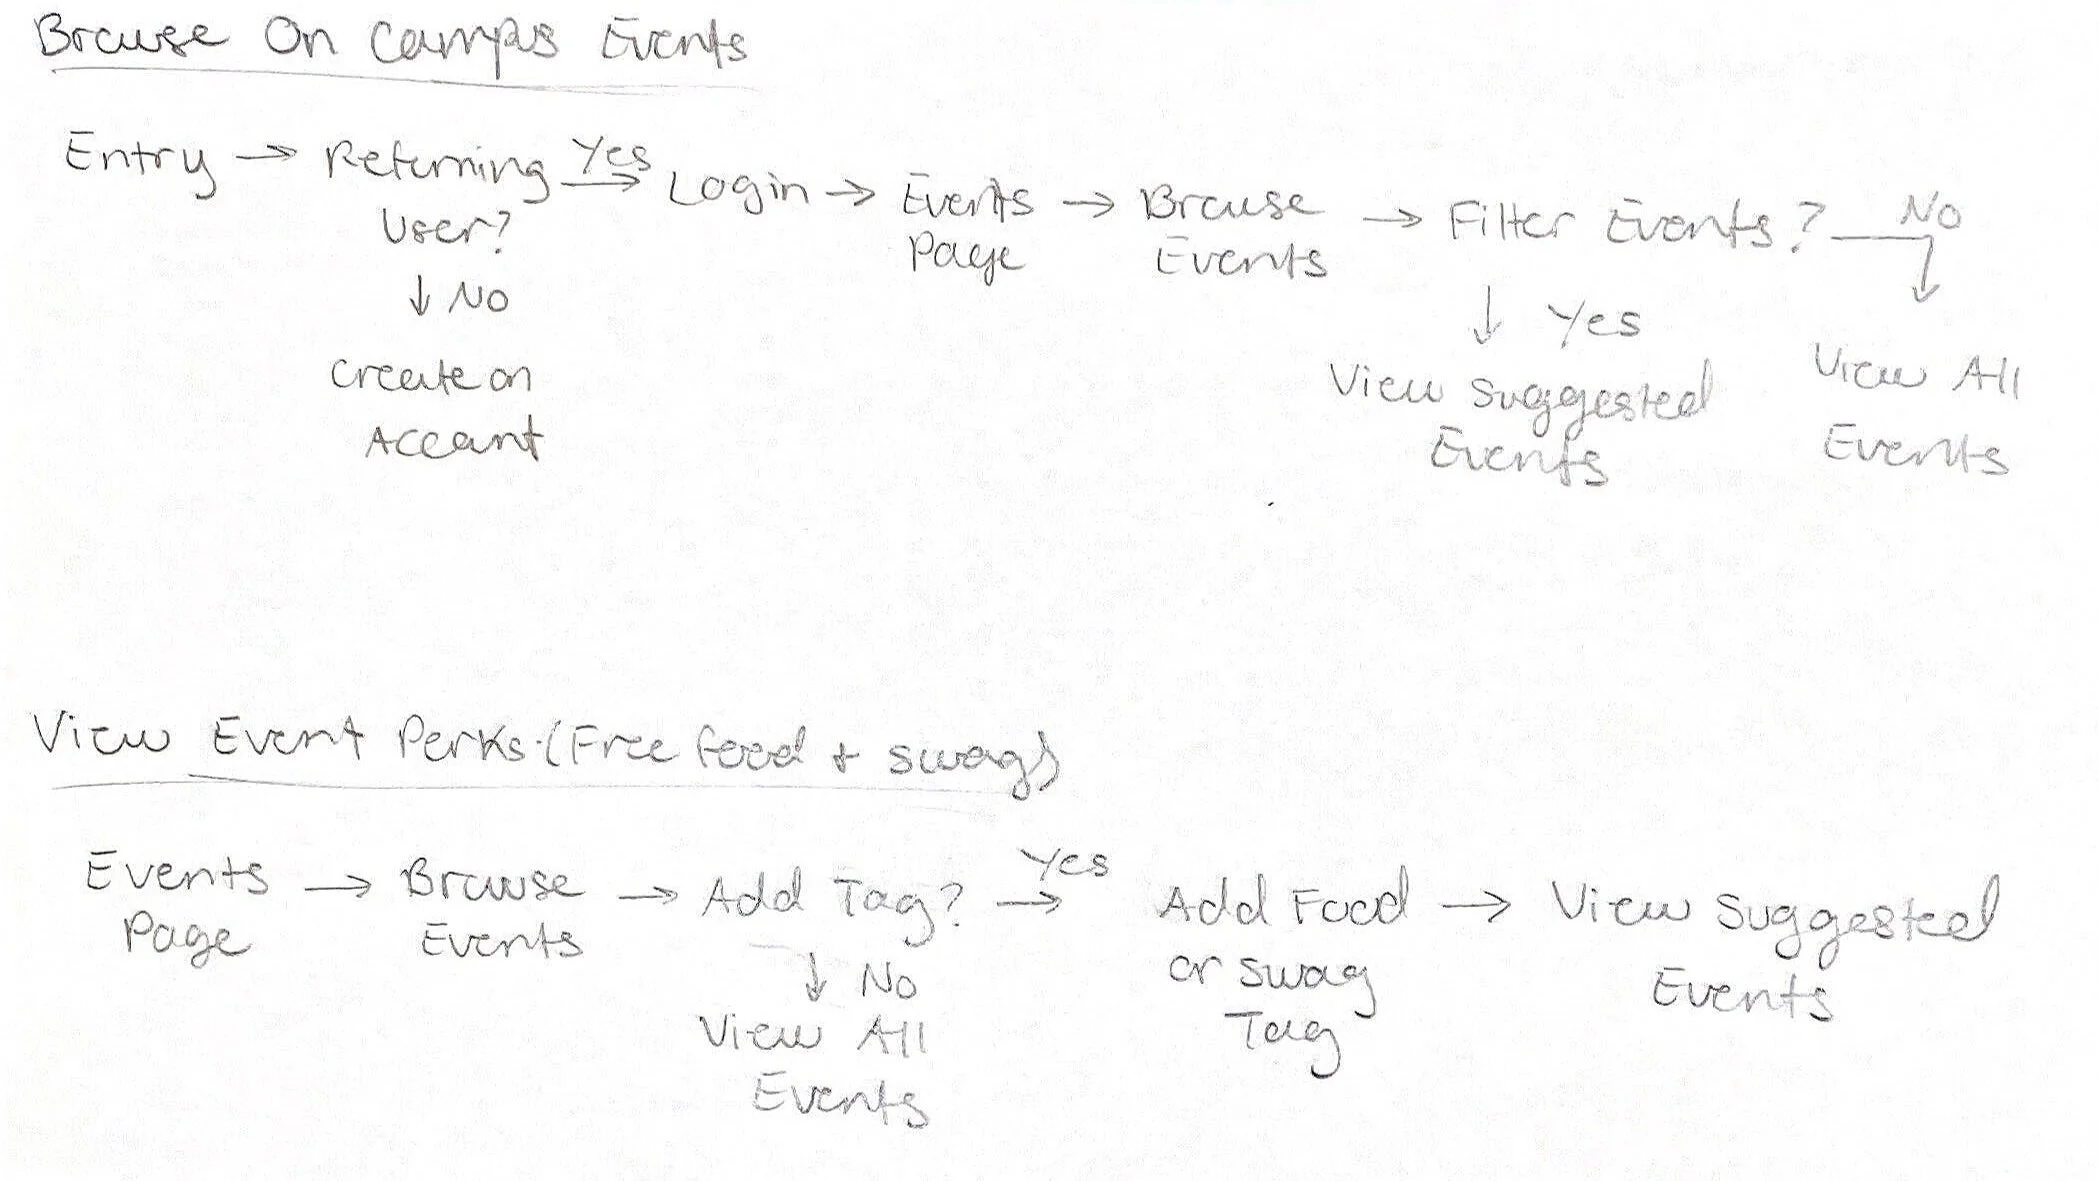 Browse On Campus Events
Entry → Returning User? Yes → Login → Events Page → Browse Events → Filter Events? No
↓ No
Create an Account
↓ Yes
View Suggested Events
↓
View All Events
View Event Perks (Free food + swag)
Events Page → Browse Events → Add Tag? Yes → Add Food or Swag Tag → View Suggested Events
↓ No
View All Events